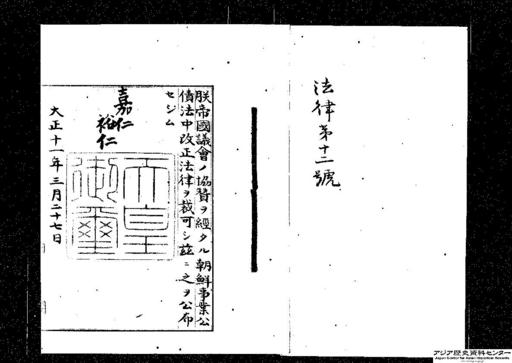 法律第十二號
朕帝國議會ノ協贊ヲ經タル朝鮮事業公
債法中改正法律ヲ裁可シ茲ニ之ヲ公布
セシム
嘉仁
裕仁
天皇御璽
大正十一年三月二十七日
アジア歴史資料センター
Japan Center for Asian Historical Records